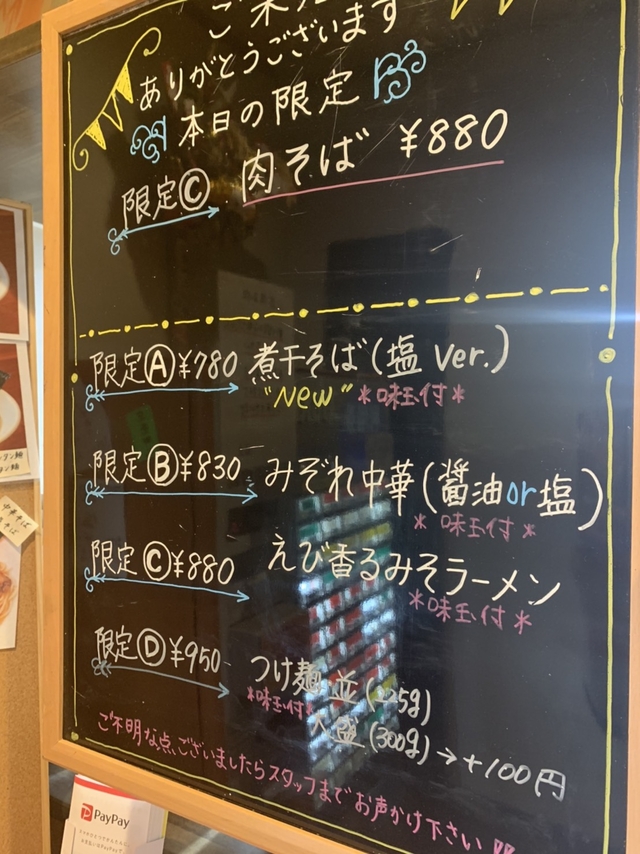 ありがとうございます
本日の限定
限定Ⓒ 肉そば ¥880
限定Ⓐ¥780 煮干そば(塩 ver.)
"New" *味玉付*
限定Ⓑ¥830 みぞれ中華(醤油or塩)
*味玉付*
限定Ⓒ¥880 えび香るみそラーメン
*味玉付*
限定Ⓓ¥950 つけ麺 並(225g)
*味玉付* 大盛(300g)→+100円
ご不明な点、ございましたらスタッフまでお声かけ下さい
PayPay